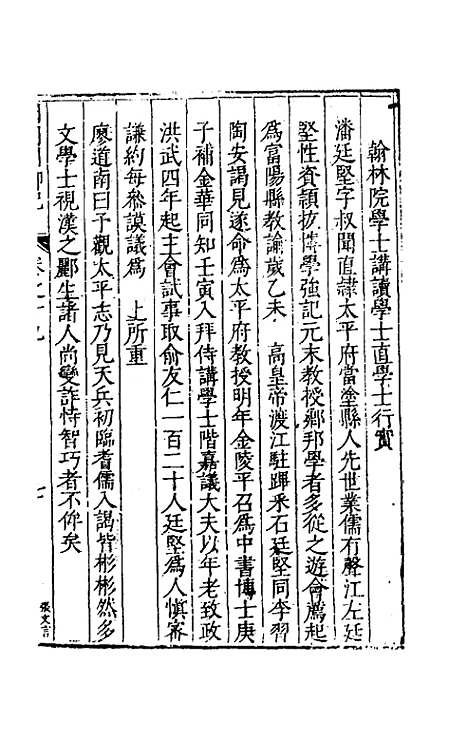 翰林院學士講讀學士直學士行實
潘廷堅字叔聞直隷太平府當塗縣人先世業儒有聲江左廷
堅性資頴拔博學強記元末教授鄉邦學者多從之遊會薦起
爲富陽縣教諭歲乙未　高皇帝渡江駐蹕采石廷堅同李習
陶安謁見遂命爲太平府教授明年金陵平召爲中書博士庚
子補金華同知壬寅入拜侍講學士階嘉議大夫以年老致政
洪武四年起主會試事取俞友仁一百二十人廷堅爲人慎審
謙約每叅謨議爲　上所重
廖道南曰予觀太平志乃見天兵初臨耆儒入謁皆彬彬然多
文學士視漢之酈生諸人尚變詐恃智巧者不侔矣
卷之十九
七
張文言